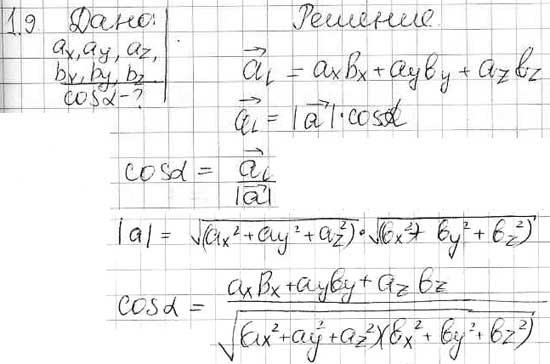 1.9 Дано: Решение.
ax, ay, az,
bx, by, bz
cosα-?
a⃗ₗ = axbx + ayby + azbz
a⃗ₗ = |a⃗|·cosα
cosα = a⃗ₗ / |a⃗|
|a| = √(ax²+ay²+az²)·√(bx²+by²+bz²)
cosα = axbx+ayby+azbz / √(ax²+ay²+az²)(bx²+by²+bz²)